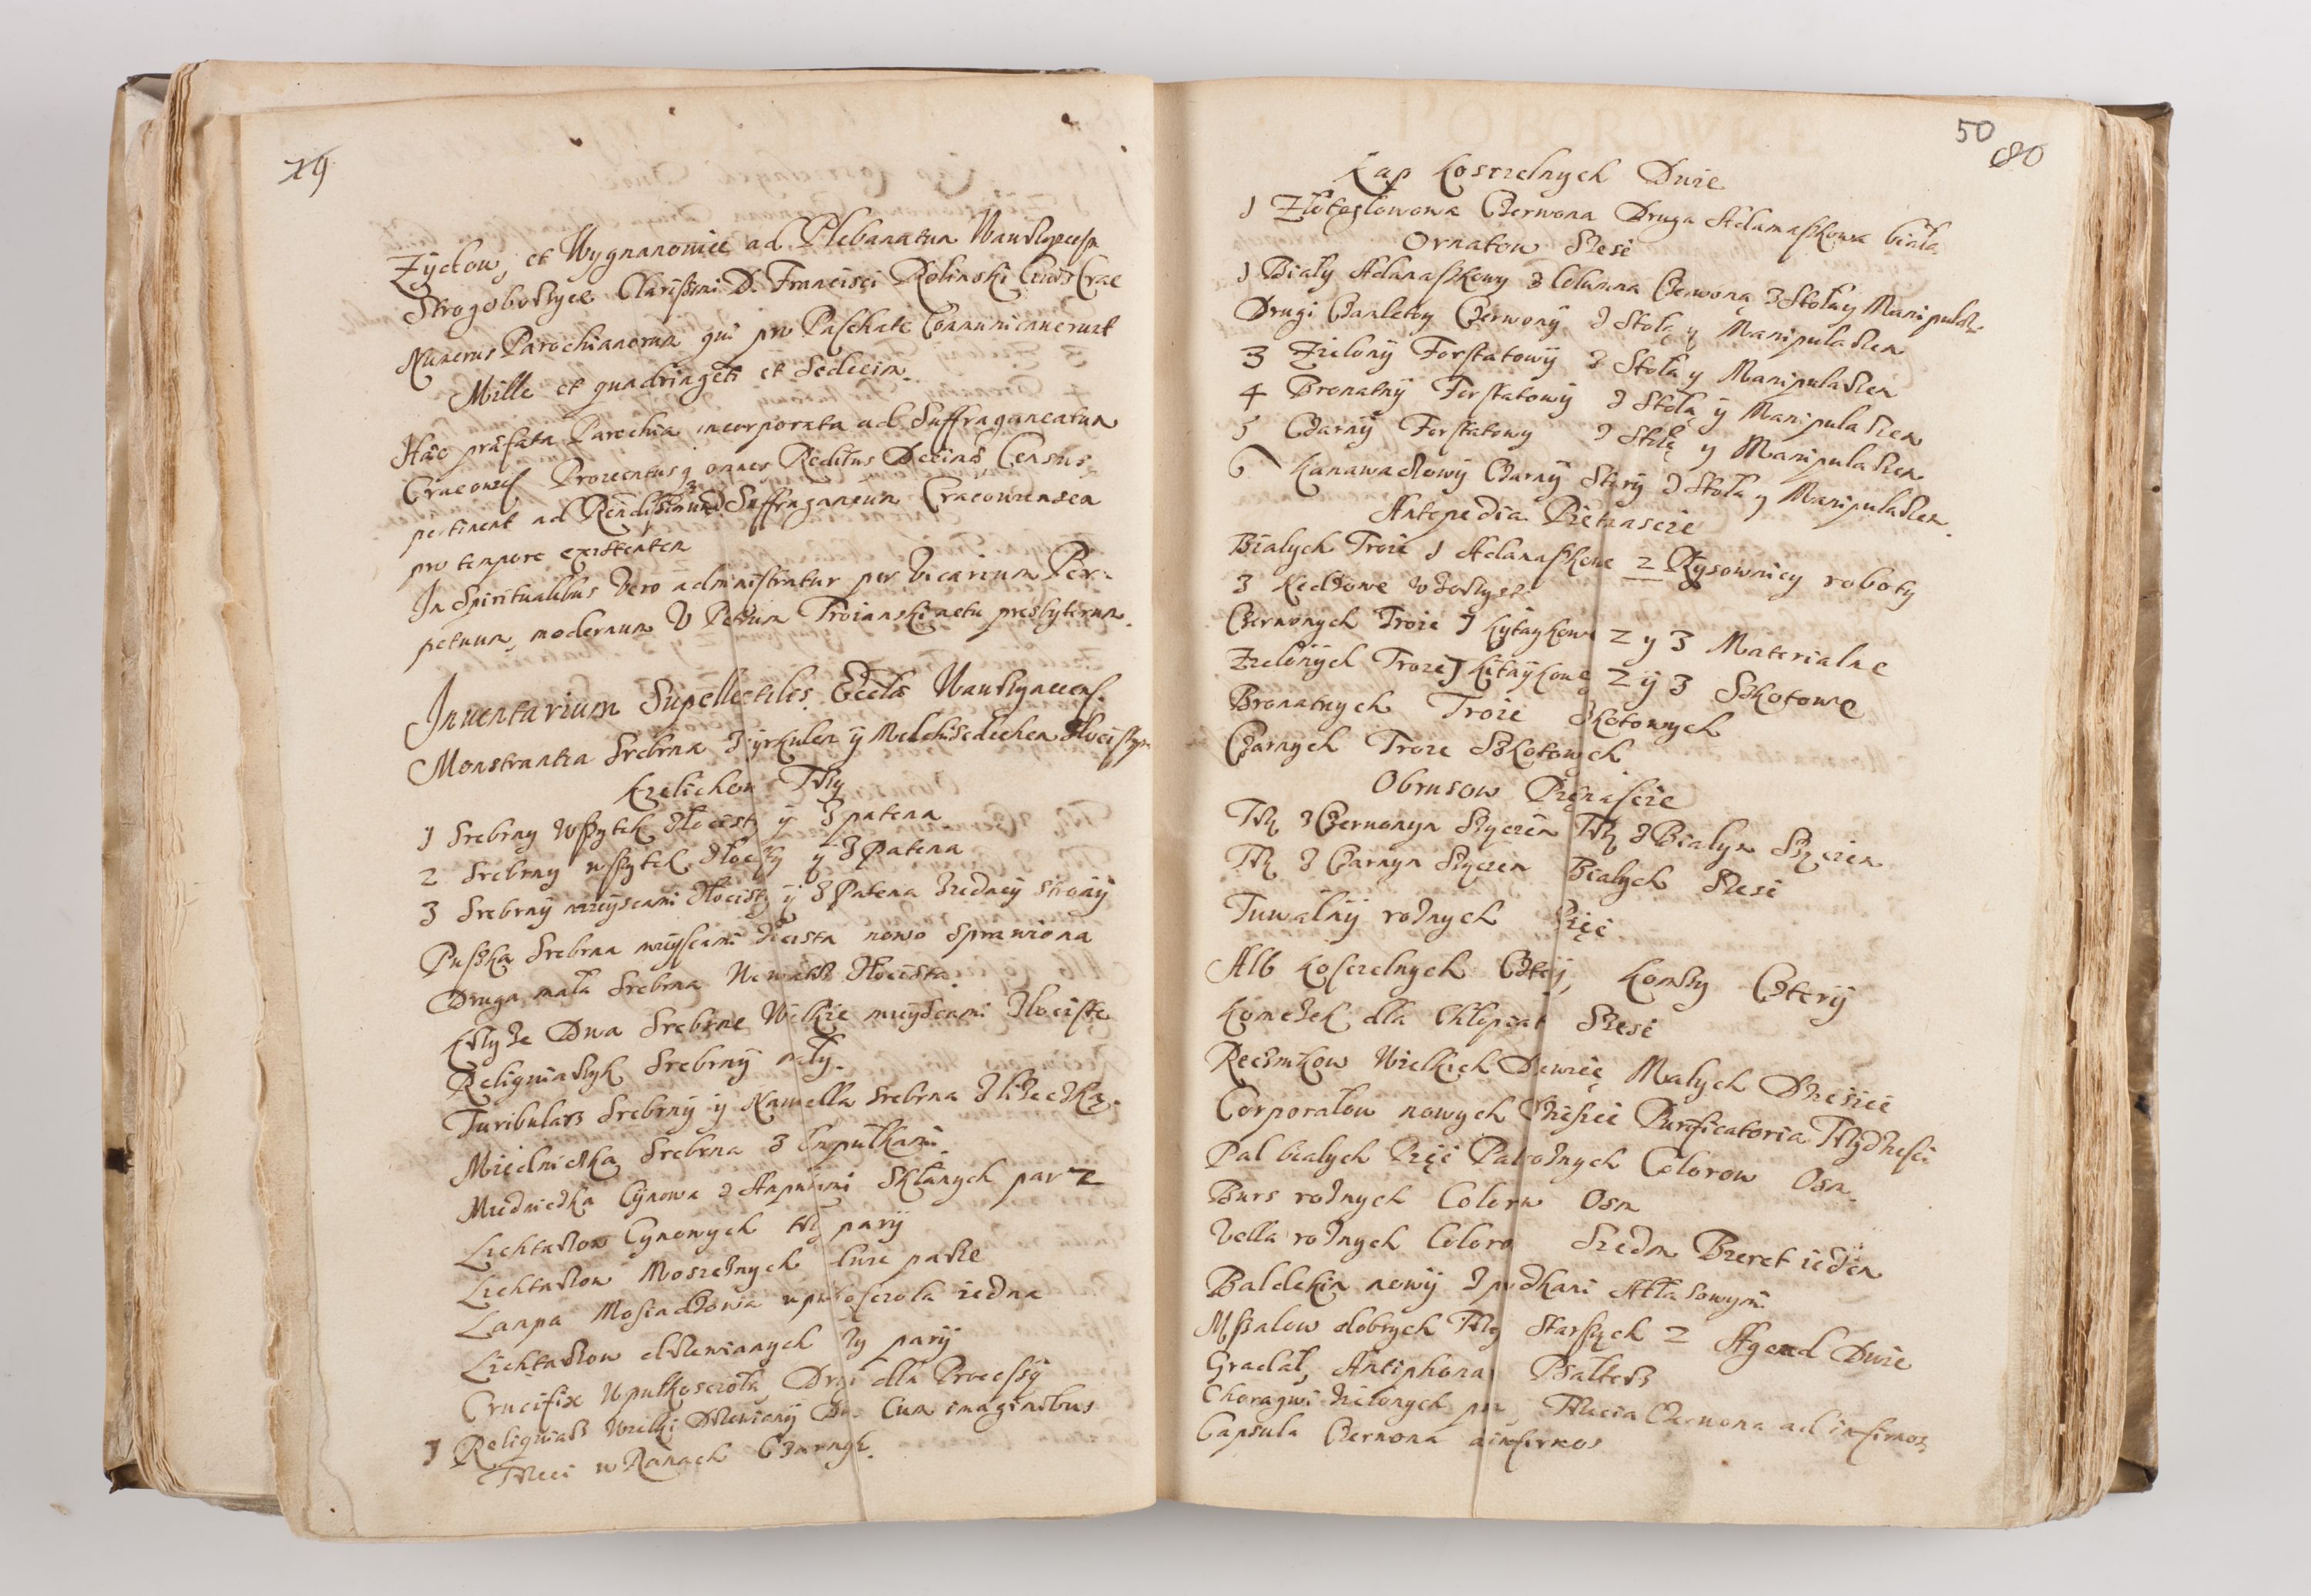 79
Zydow, et Wygnanowice ad Plebanatum Wawrzyncesem
Strogoborzyce Clarissimi D. Francisci Rolinski
Numerus Parochianorum qui pro Paschate Communicauerunt
Mille et quadringeti et Sedecim.
Haec praefata Parochia incorporata ad Suffraganeatum
Prouentusq omnes Reditus Decimae Census
pertinent ad Suffraganeum Cracouiensem
pro tempore existentem
In Spiritualibus Vero administratur per Vicarium Per-
petuum, modernum V Petrum Troianski aetu presbyterum.
Inuentarium Supellectiles Eccla
Monstrantia Srebrna Zcyrkulem ÿ Melchisedechem Zlocistym
Kzelichow Trzy
1 Srebrny Wszytek Zlocisty ÿ Z patena
2 Srebrny wszytek Zlocisty ÿ Z Patena
3 Srebrnÿ mieÿscami Zlocisty ÿ Z Patena Ziedneÿ stronÿ
Puszka Srebrna mieÿscami Zlocista nowo Sprawiona
Druga mała Srebrna Zlocista.
Krzyze Dwa Srebrne Wielkie mieÿscami Zlociste
Reliquiarzyk Srebrnÿ małÿ.
Turibularz Srebrnÿ ÿ Nawella Srebrna Zlizeczką.
Miednicżka Srebrna z Ampułkami.
Miedniczka Cÿnowa z Ampułkami Sklanych par 2
Lichtarzow Cynowych trzy parÿ
Lichtarzow Mosieznych parze
Lampa Mosiadzowa wpułkosciola iedna
Lichtarzow drzewianych trzy parÿ
Crucifix Wpułkosciola Drugi dla Processÿi
1 Reliquiarz Wielki Drzewianÿ Cum imaginibus
Trzeci w Ramach Czarnych.
50
80
Kap Koscielnych Dwie
1 Złotogłowowa Czerwona Druga Adamaszkowa biała
Ornatow Szesc
1 Biały Adamaszkowy z Columna Czerwoną z Stołą y Manipularzem
Drugi Czamletowy Czerwonÿ z Stołą y Manipularzem
3 Zielonÿ Forsztatowÿ z Stołą y Manipularzem
4 Bronatnÿ Forsztatowÿ z Stołą ÿ Manipularzem
5 Czarnÿ Forsztatowy z Stołą y Manipularzem
6 Kanawaczowÿ Czarnÿ Starÿ z Stołą y Manipularzem.
Antepedia Pietnascie
Białych Troie 1 Adamaszkowe 2 Rysowniey roboty
3 Kiedzowe
Czerwonych Troie 1 Kytaykowe 2 y 3 Materialne
Zielonÿch Troie 1 Kitaÿkowe 2 ÿ 3 Szkotowe
Bronatnych Troie Szkotowych
Czarnych Troie Szkotowych
Obrusow Piętnascie
Trzy z Czerwonym Szyciem Trzy z Białym Szyciem
Trzy z Czarnym Szyciem Białych Szesc
Tuwalnÿ roznych Pięc
Alb Koscielnych Cztery, Komzy Czterÿ
Komezek dla Chłopiat Szesc
Recznikow Wielkich Dziewięc Małych Dziesiec
Corporałow nowych Dziesiec Purificatoria Trzydziesci
Pal białych Pięc Pal roznych Colorow Osm.
Burs roznych Colorw Osm
Vella roznych Coloro Siedm Bieret ieden
Baldekin nowÿ Zpretkami Attasowymi
Mszałow dobrych Trzy Starszych 2 Agend Dwie
Gradał, Antiphonał Psałterz
Choragwi Zielonych para, Trzecia Czerwona ad infirmos
Capsula Czerwona ad infirmos